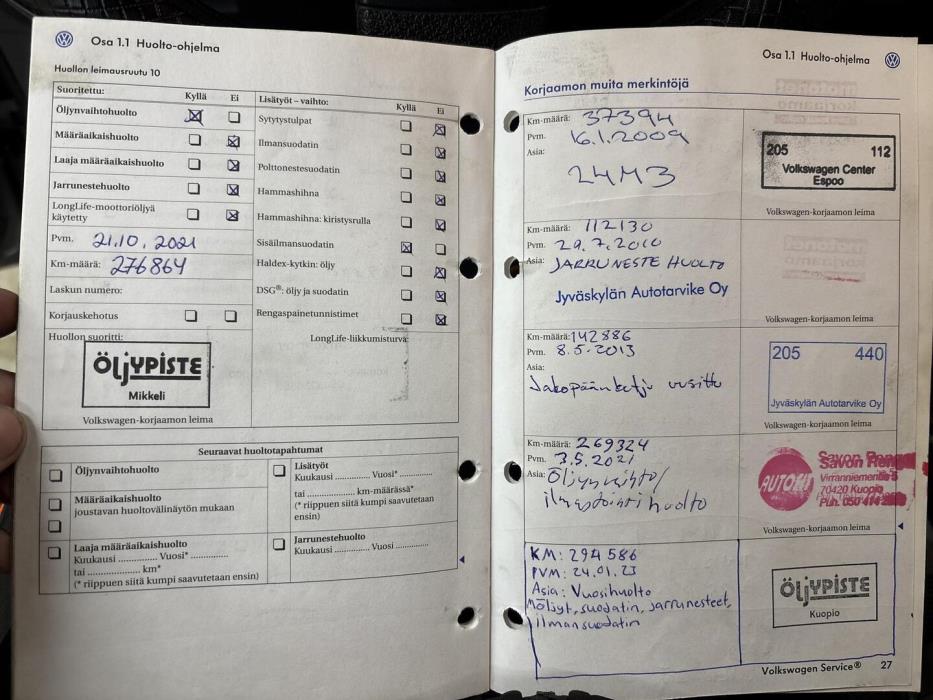 Osa 1.1 Huolto-ohjelma
Huollon leimausruutu 10
Suoritettu: Kyllä Ei
Öljynvaihtohuolto
Määräaikaishuolto
Laaja määräaikaishuolto
Jarrunestehuolto
LongLife-moottoriöljyä
käytetty
Pvm. 21.10.2021
Km-määrä: 276864
Laskun numero:
Korjauskehotus
Huollon suoritti:
ÖLJYPISTE
Mikkeli
Volkswagen-korjaamon leima
Lisätyöt – vaihto: Kyllä Ei
Sytytystulpat
Ilmansuodatin
Polttonestesuodatin
Hammashihna
Hammashihna: kiristysrulla
Sisäilmansuodatin
Haldex-kytkin: öljy
DSG®: öljy ja suodatin
Rengaspainetunnistimet
LongLife-liikkumisturva:
Seuraavat huoltotapahtumat
Öljynvaihtohuolto
Määräaikaishuolto
joustavan huoltovälinäytön mukaan
Laaja määräaikaishuolto
Kuukausi .............. Vuosi* ..............
tai .................... km*
(* riippuen siitä kumpi saavutetaan ensin)
Lisätyöt
Kuukausi ............. Vuosi* .............
tai .................... km-määrässä*
(* riippuen siitä kumpi saavutetaan
ensin)
Jarrunestehuolto
Kuukausi ............. Vuosi .............
Osa 1.1 Huolto-ohjelma
Korjaamon muita merkintöjä
Km-määrä: 37394
Pvm. 16.1.2009
Asia:
24M3
205 112
Volkswagen Center
Espoo
Volkswagen-korjaamon leima
Km-määrä: 112130
Pvm. 29.7.2010
Asia: JARRUNESTE HUOLTO
Jyväskylän Autotarvike Oy
Volkswagen-korjaamon leima
Km-määrä: 142886
Pvm. 8.5.2013
Asia:
Jakopään ketju uusittu
205 440
Jyväskylän Autotarvike Oy
Volkswagen-korjaamon leima
Km-määrä: 269324
Pvm. 3.5.2021
Asia: Öljynvaihto/
ilmastointi huolto
Savon
Virranniementie 5
70420 Kuopio
Puh. 050
Volkswagen-korjaamon leima
KM: 294586
PVM: 24.01.23
Asia: Vuosihuolto
Möljyt, suodatin, jarrunesteet,
ilmansuodatin
ÖLJYPISTE
Kuopio
Volkswagen Service® 27